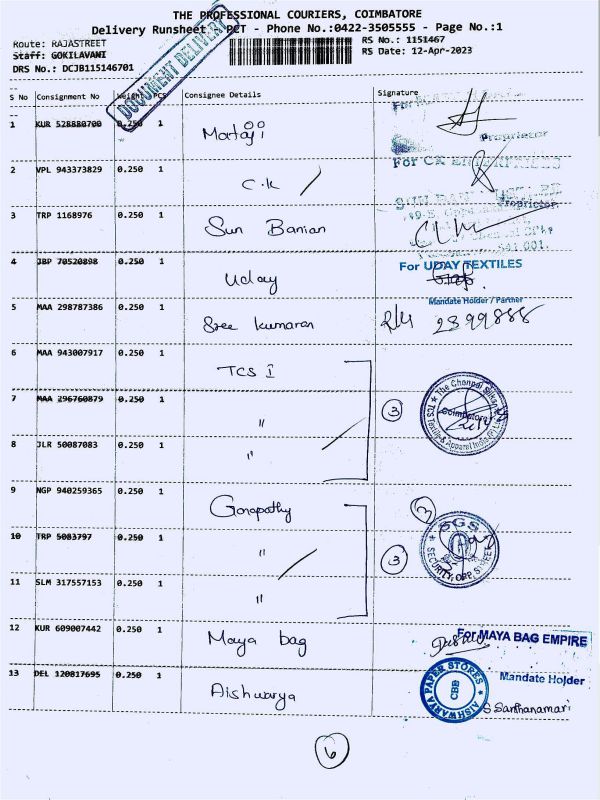 THE PROFESSIONAL COURIERS, COIMBATORE
Delivery Runsheet - PCT - Phone No.:0422-3505555 - Page No.:1
Route: RAJASTREET
RS No.: 1151467
Staff: GOKILAVANI
RS Date: 12-Apr-2023
DRS No.: DCJB115146701
DOCUMENT DELIVERY
S No Consignment No Weight PCS Consignee Details Signature
1 KUR 528880700 0.250 1
Proprietor
2 VPL 943373829 0.250 1 C.K
For CK ENTERPRISES
Proprietor
3 TRP 1168976 0.250 1 Sun Banian
641 001.
4 JBP 70520898 0.250 1 Uday
For UDAY TEXTILES
Mandate Holder / Partner
5 MAA 298787386 0.250 1 Sree Kumaran
6 MAA 943007917 0.250 1 TCS I
7 MAA 296760879 0.250 1 "
3
The Chennai Silks
Coimbatore
TCS Textile & Apparel India (P) Ltd
8 JLR 50087083 0.250 1 "
9 NGP 940259365 0.250 1 Ganapathy
10 TRP 5083797 0.250 1 "
3
SGS
SECURITY, OPP STREET
11 SLM 317557153 0.250 1 "
12 KUR 609007442 0.250 1 Maya bag
For MAYA BAG EMPIRE
Mandate Holder
13 DEL 120817695 0.250 1 Aishwarya
AISHWARYA PAPER STORES
CBB
6